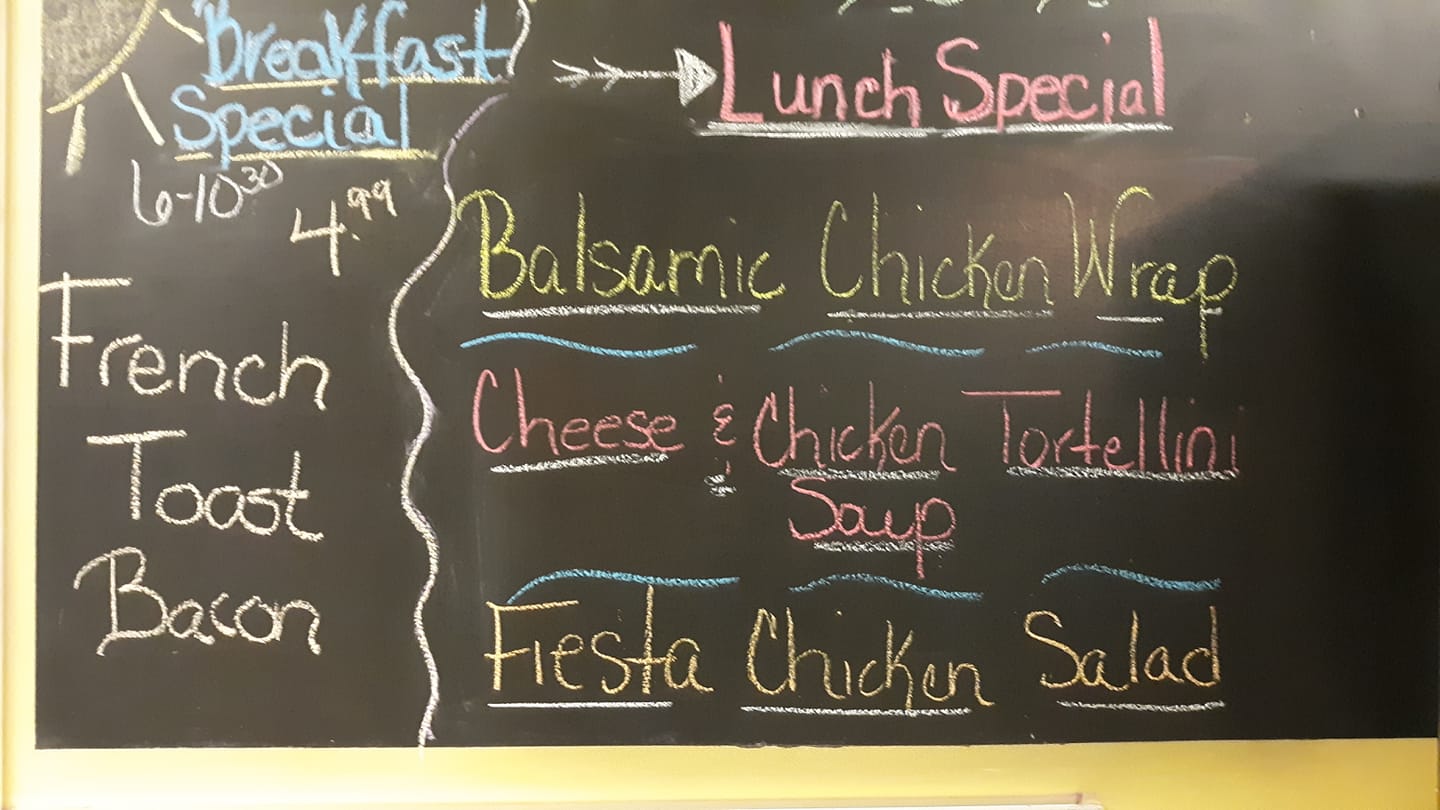 Breakfast
Special
6-10 30
4.99
French
Toast
Bacon
Lunch Special
Balsamic Chicken Wrap
Cheese & Chicken Tortellini
Soup
Fiesta Chicken Salad